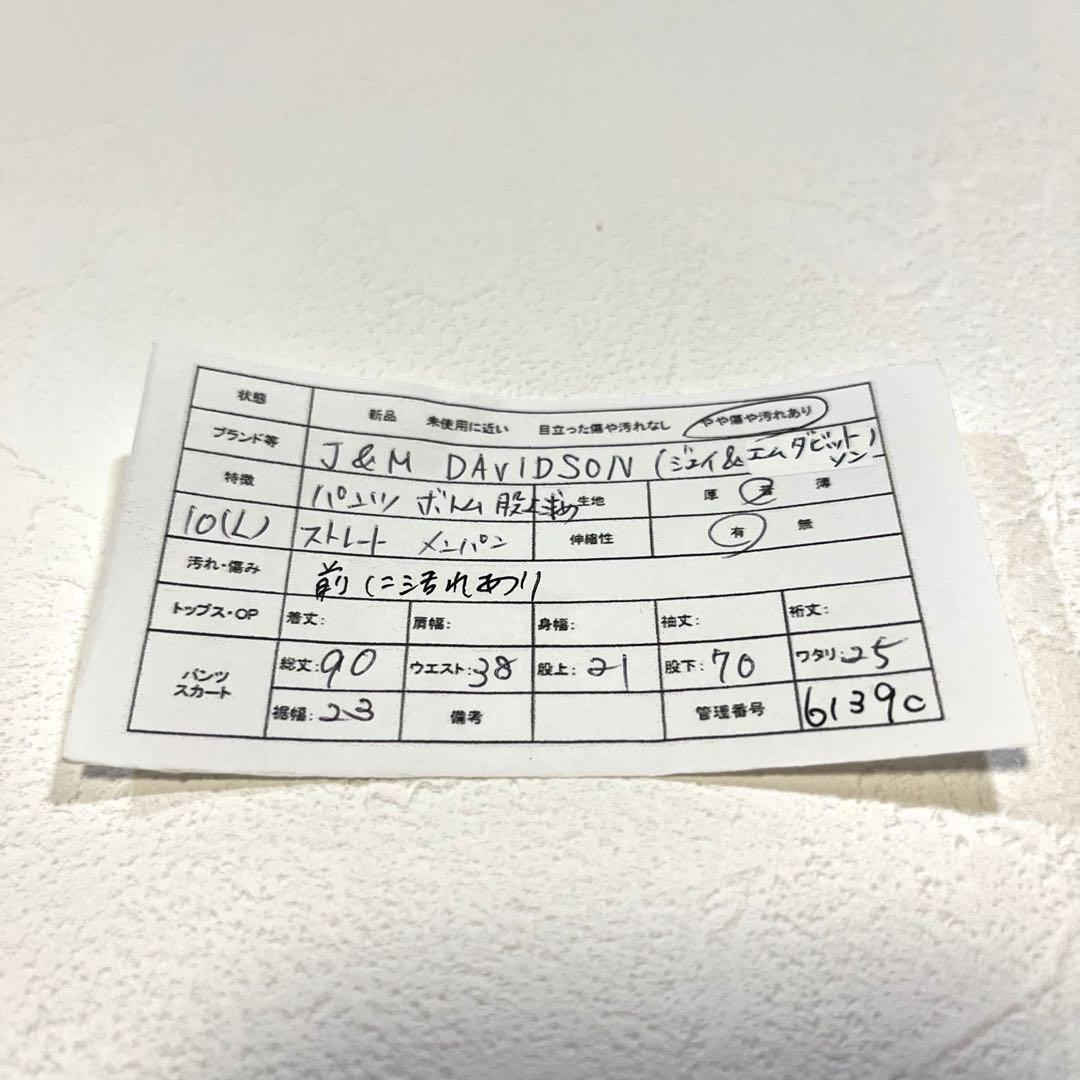 状態 新品 未使用に近い 目立った傷や汚れなし やや傷や汚れあり
ブランド等 J&M DAVIDSON (ジェイ&エムダビットソン)
特徴 パンツ ボトム 股上 生地 厚 普 薄
10(L) ストレート メンパン 伸縮性 有 無
汚れ・傷み 前に汚れあり
トップス・OP 着丈: 肩幅: 身幅: 袖丈: 裄丈:
パンツ スカート 総丈:90 ウエスト:38 股上:21 股下:70 ワタリ:25
裾幅:23 備考 管理番号 6139c